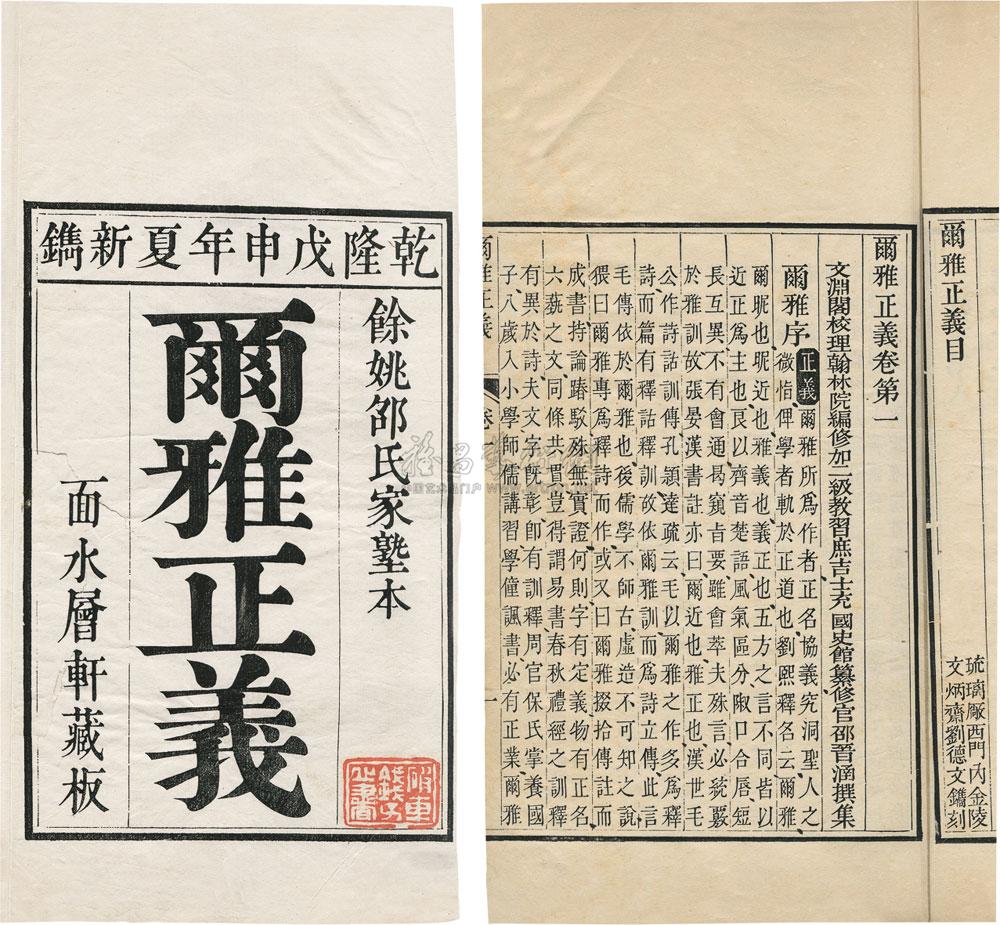 乾隆戊申年夏新鐫
餘姚邵氏家塾本
爾雅正義
面水層軒藏板
爾雅正義目
琉璃厰西門內金陵
文炳齋劉德文鐫刻
爾雅正義卷第一
文淵閣校理翰林院編修加二級教習庶吉士充國史館纂修官邵晉涵撰集
爾雅序正義爾雅所爲作者正名協義究洞聖人之
微恉俾學者軌於正道也劉熙釋名云爾雅
爾昵也昵近也雅義也義正也五方之言不同皆以
近正爲主也良以齊音楚語風氣區分斂口合唇短
長互異不有會通曷窺㫖要雖會萃夫殊言必𥿄覈
於雅訓故張晏漢書註亦曰爾近也雅正也漢世毛
公作詩詁訓傳孔穎達疏云毛以爾雅之作多爲釋
詩而篇有釋詁釋訓故依爾雅訓而爲詩立傳此言
毛傳依於爾雅也後儒學不師古虛造不可知之說
猥曰爾雅專爲釋詩而作或又曰爾雅掇拾傳註而
成書持論踳駮殊無實證何則字有定義物有正名
六蓺之文同條共貫豈得謂易書春秋禮經之訓釋
有異於詩夫文字旣彰卽有訓釋周官保氏掌養國
子八歲入小學師儒講習學僮諷書必有正業爾雅
爾雅正義
卷一
一